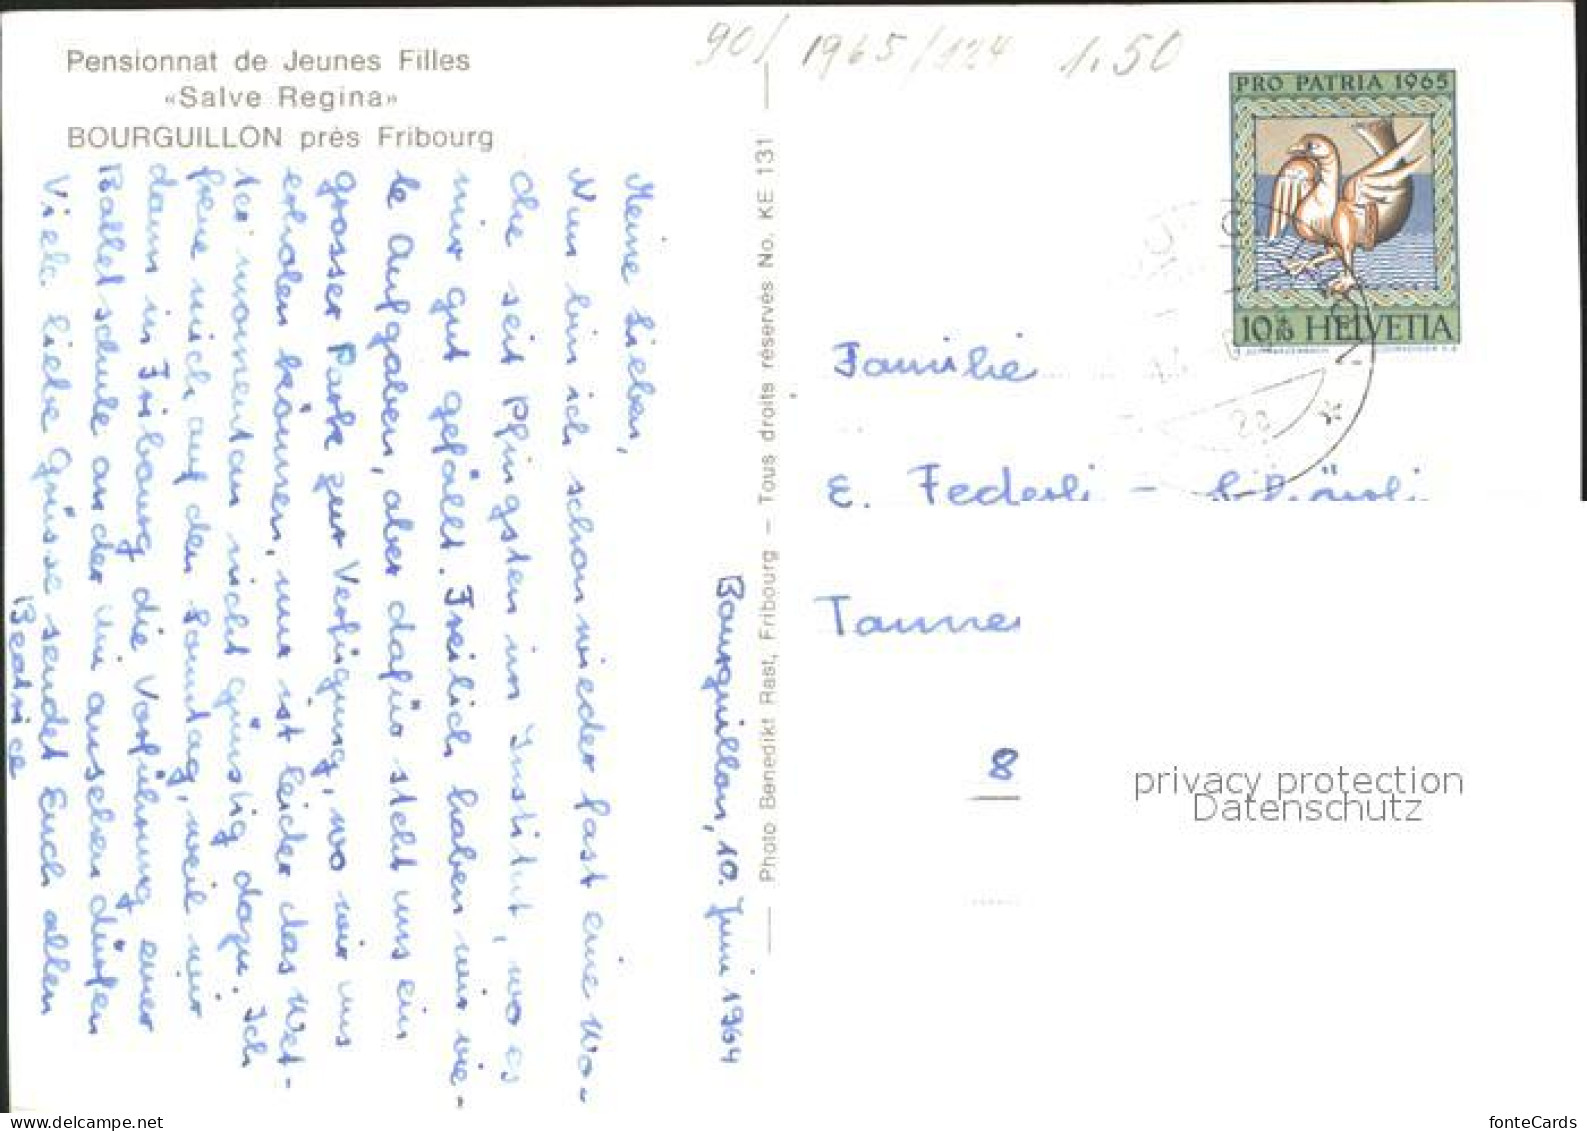 90/ 1965/124 1.50
Pensionnat de Jeunes Filles
«Salve Regina»
BOURGUILLON près Fribourg
Bourguillon, 10. Juni 1964
Meine Lieben,
Nun bin ich schon wieder fast eine Wo-
che seit Pfingsten im Institut, wo es
mir gut gefällt. Freilich haben wir vie-
le Aufgaben, aber dafür steht uns ein
grosser Park zur Verfügung, wo wir uns
erholen können, nur ist leider das Wet-
ter momentan nicht günstig dazu. Ich
freue mich auf den Sonntag, weil wir
dann in Fribourg die Vorführung einer
Balletschule an der Uni ansehen dürfen
Viele liebe Grüsse sendet Euch allen
Beatrice
Photo Benedikt Rast, Fribourg — Tous droits réservés No. KE 131
PRO PATRIA 1965
10+10 HELVETIA
Familie
E. Federli -
Tanne
8
privacy protection
Datenschutz
fonteCards